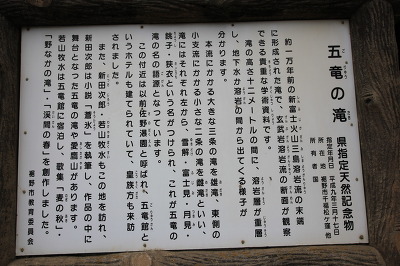 五竜の滝
ごりゅう たき
県指定天然記念物
指定年月日 平成九年三月十七日
所在地 裾野市千福松ケ窪 他
所有者 国
約一万年前の新富士火山三島溶岩流の末端
に形成された滝で、玄武岩溶岩流の断面が観察
できる貴重な学術資料です。
滝の高さ十二メートルの間に、溶岩層が重層
し、地下水が溶岩の間から湧出てくる様子が
分かります。
本流にかかる大きな三条の滝を雄滝、東側の
小支流にかかる小さな二条の滝を雌滝といい、
滝にはそれぞれ左から、雪解・富士見・月見・
銚子・狭衣という名がつけられ、これが五竜の
滝の名の語源となっています。
この付近は以前佐野瀑園と呼ばれ、五竜館と
いうホテルも建てられていて、皇族方も来訪
されました。
また、新田次郎・若山牧水もこの地を訪れ、
新田次郎は小説「蒼氷」を執筆し、作品の中に
舞台となった五竜の滝や愛鷹山があります。
若山牧水は五竜館に宿泊し、歌集「麦の秋」・
「野なかの滝」・「渓間の春」を創作しました。
裾野市教育委員会